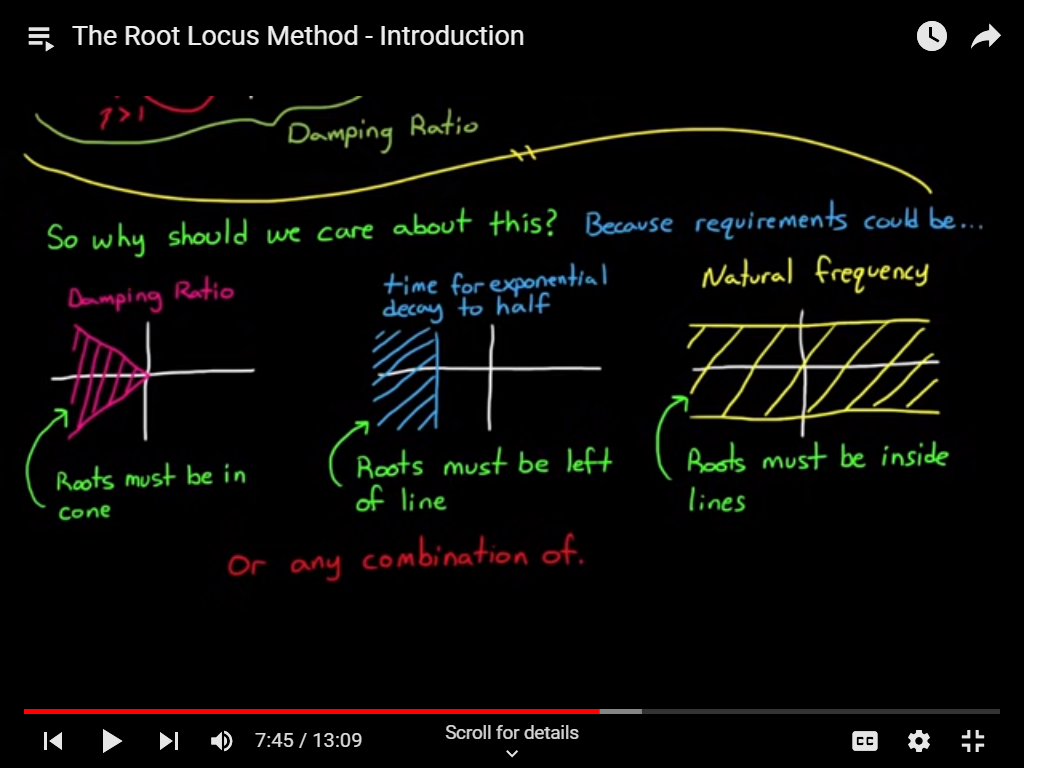 The Root Locus Method - Introduction
Damping Ratio
So why should we care about this? Because requirements could be...
Damping Ratio
time for exponential
decay to half
Natural frequency
Roots must be in
cone
Roots must be left
of line
Roots must be inside
lines
Or any combination of.
7:45 / 13:09
Scroll for details
CC